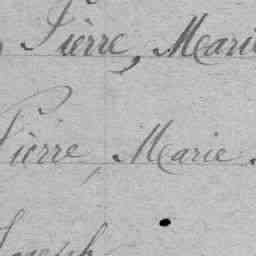 Pierre, Marie
Pierre, Marie
Joseph